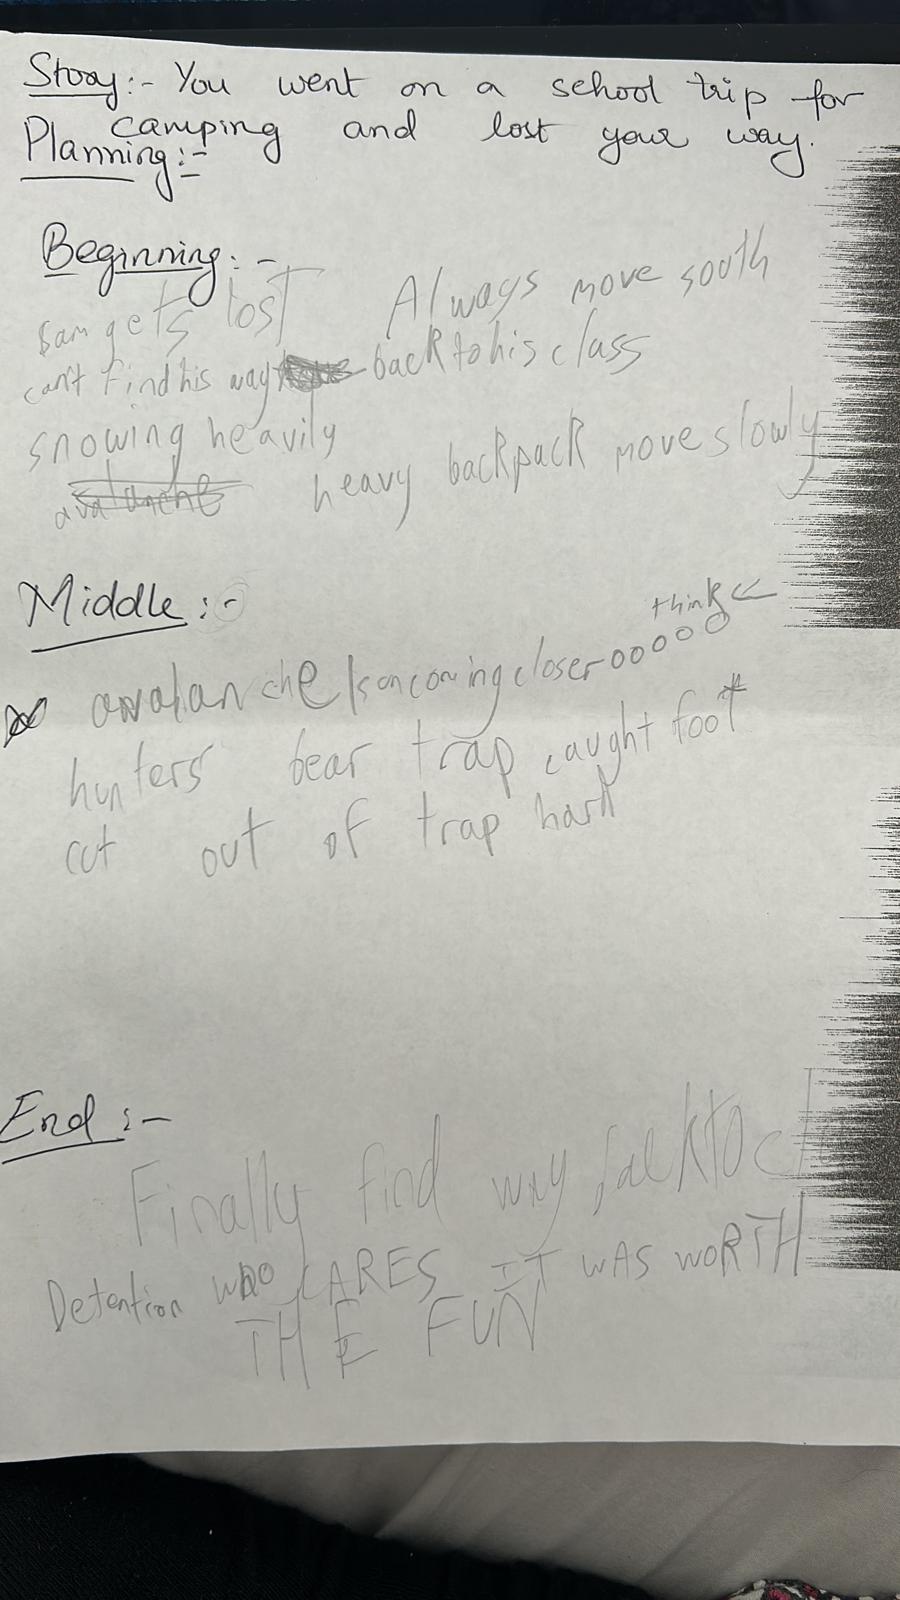 Story:- You went on a school trip for
camping and lost your way.
Planning:-
Beginning:-
Sam gets lost Always move south
can't find his way back to his class
snowing heavily
heavy backpack move slowly
avalanche
Middle:-
think <
avalanche is oncoming closer ooooo
hunters bear trap caught foot
cut out of trap hard
End:-
Finally find way back to
Detention who CARES IT WAS WORTH
THE FUN